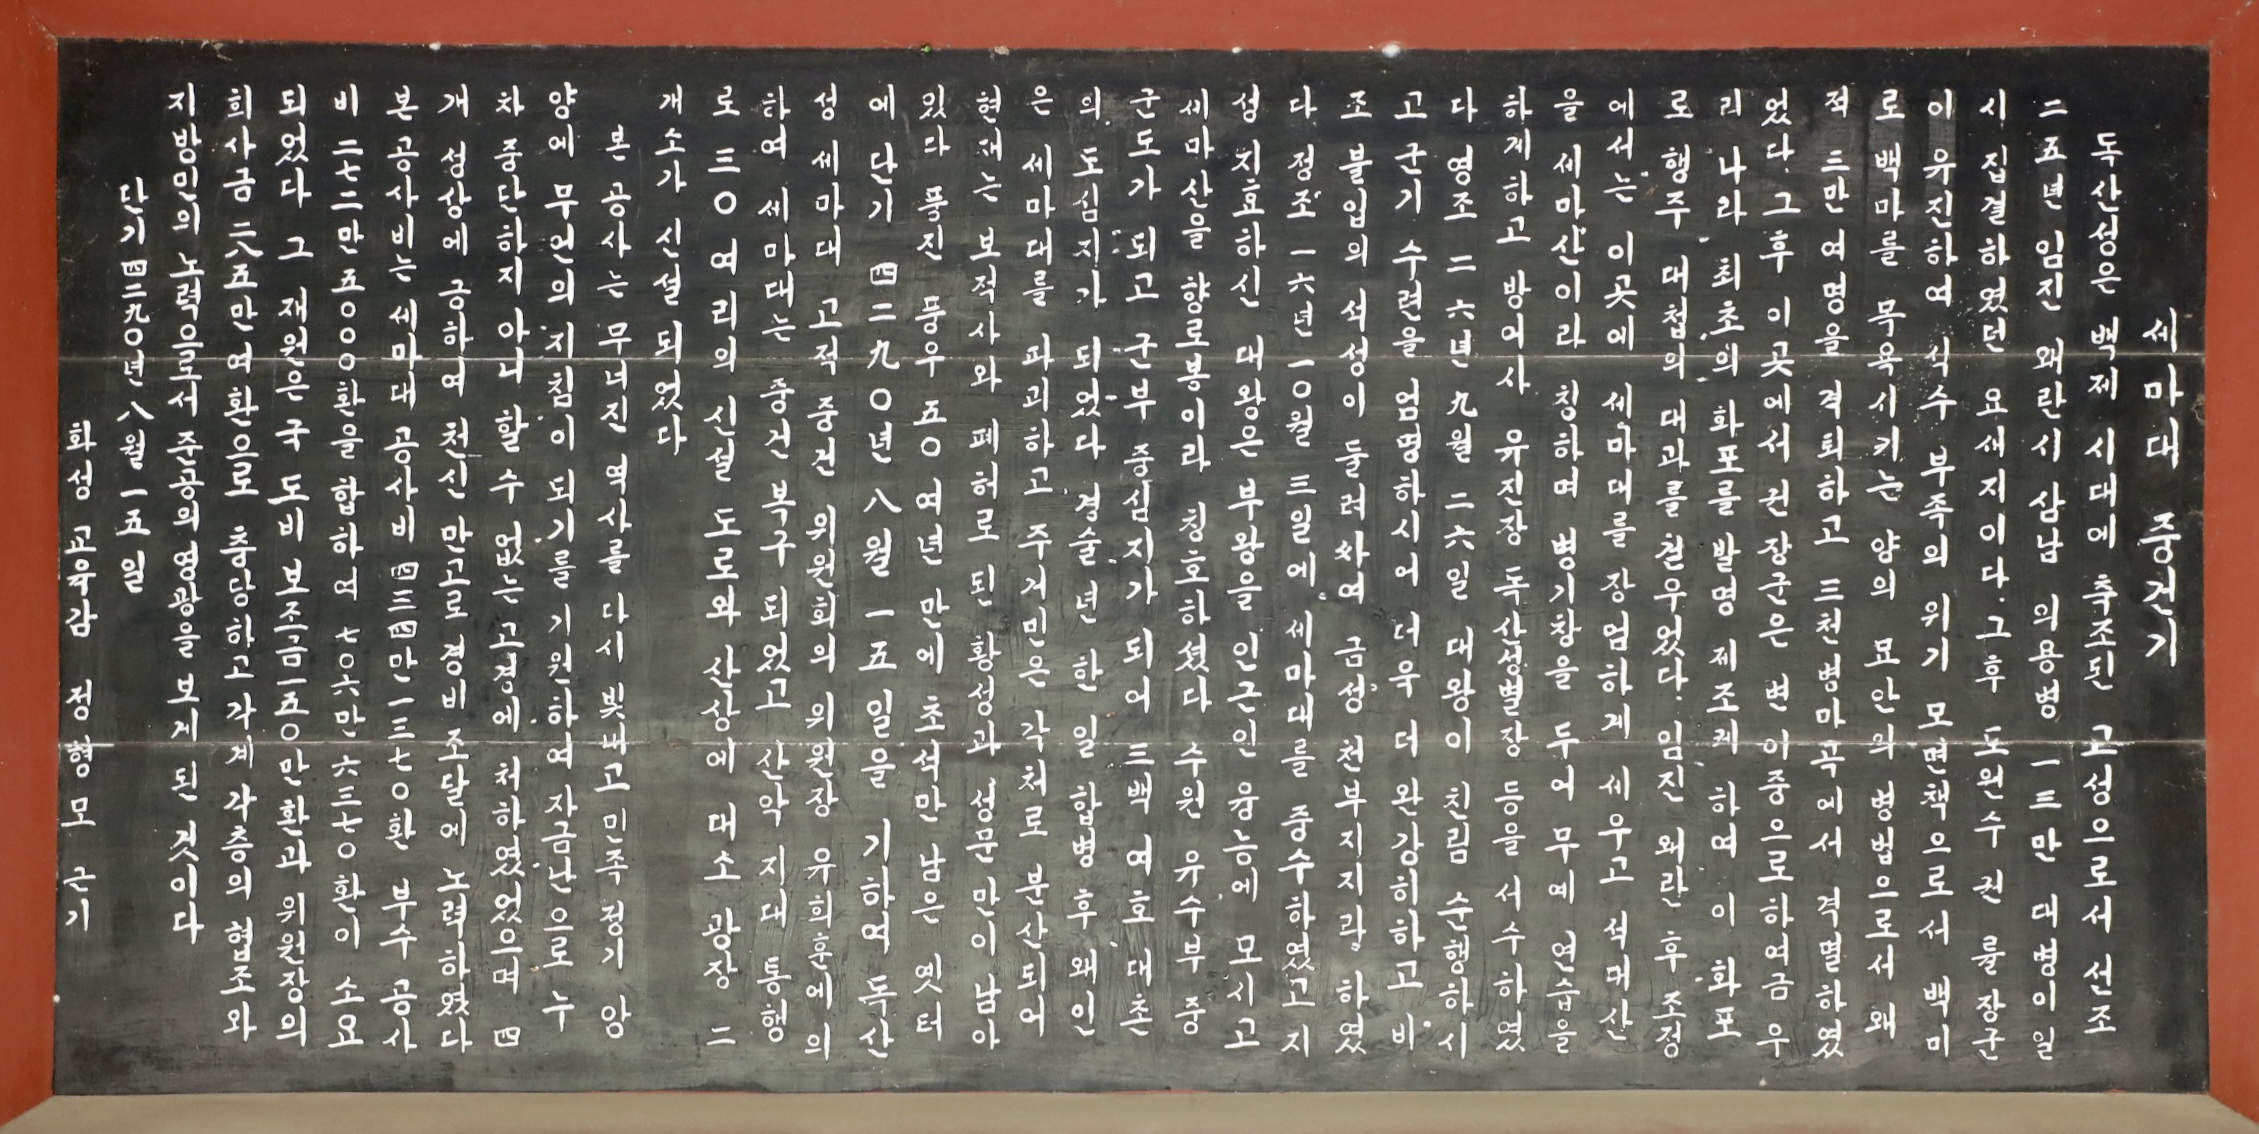 세마대 중건기
독산성은 백제 시대에 축조된 고성으로서 선조
二五년 임진 왜란시 삼남 의용병 一三만 대병이 일
시 집결하였던 요새지이다. 그후 도원수 권 률 장군
이 유진하여 식수 부족의 위기 모면책으로서 백미
로 백마를 목욕시키는 양의 묘안의 병법으로서 왜
적 三만여명을 격퇴하고 三천 병마곡에서 격멸하였
었다. 그후 이곳에서 권장군은 변이중으로하여금 우
리 나라 최초의 화포를 발명 제조케 하여 이 화포
로 행주 대첩의 대과를 헌우었다. 임진 왜란 후 조정
에서는 이곳에 세마대를 장엄하게 세우고 석대산
을 세마산이라 칭하며 병기창을 두어 무예 연습을
하게하고 방어사 유진장 독산성별장 등을 서수하였
다 영조 二六년 九월 二六일 대왕이 친림 순행하시
고 군기 수련을 엄명하시어 더욱 더 완강히하고 비
조불입의 석성이 둘러싸여 금성 천부지지라 하였
다. 정조 一六년 一○월 三일에 세마대를 중수하였고 지
성지효하신 대왕은 부왕을 인근인 융능에 모시고
세마산을 향로봉이라 칭호하셨다 수원 유수부 중
군도가 되고 군부 중심지가 되어 三백여호 대촌
의 도심지가 되었다 경술년 한일 합병 후 왜인
은 세마대를 파괴하고 주거민은 각처로 분산되어
현재는 보적사와 폐허로 된 황성과 성문만이 남아
있다 풍진 풍우 五○여년만에 초석만 남은 옛터
에 단기 四二九○년 八월 一五일을 기하여 독산
성 세마대 고적 중건 위원회의 위원장 유희훈에 의
하여 세마대는 중건 복구 되었고 산악 지대 통행
로 三○여리의 신설 도로와 산상에 대소 광장 二
개소가 신설 되었다
본 공사는 무너진 역사를 다시 빛내고 민족정기 앙
양에 무언의 지침이 되기를 기원하여 자금난으로 누
차 중단하지 아니 할 수 없는 고경에 처하였었으며 四
개 성상에 긍하여 천신 만고로 경비 조달에 노력하였다
본 공사비는 세마대 공사비 四三四만一三七○환 부수 공사
비 二七二만五○○○환을 합하여 七○六만六三七○환이 소요
되었다 그 재원은 국 도비 보조금 一五○만환과 위원장의
희사금 二八五만여환으로 충당하고 각계 각층의 협조와
지방민의 노력으로서 준공의 영광을 보게 된 것이다
단기 四二九○년 八월 一五일
화성 교육감 정형모 근기